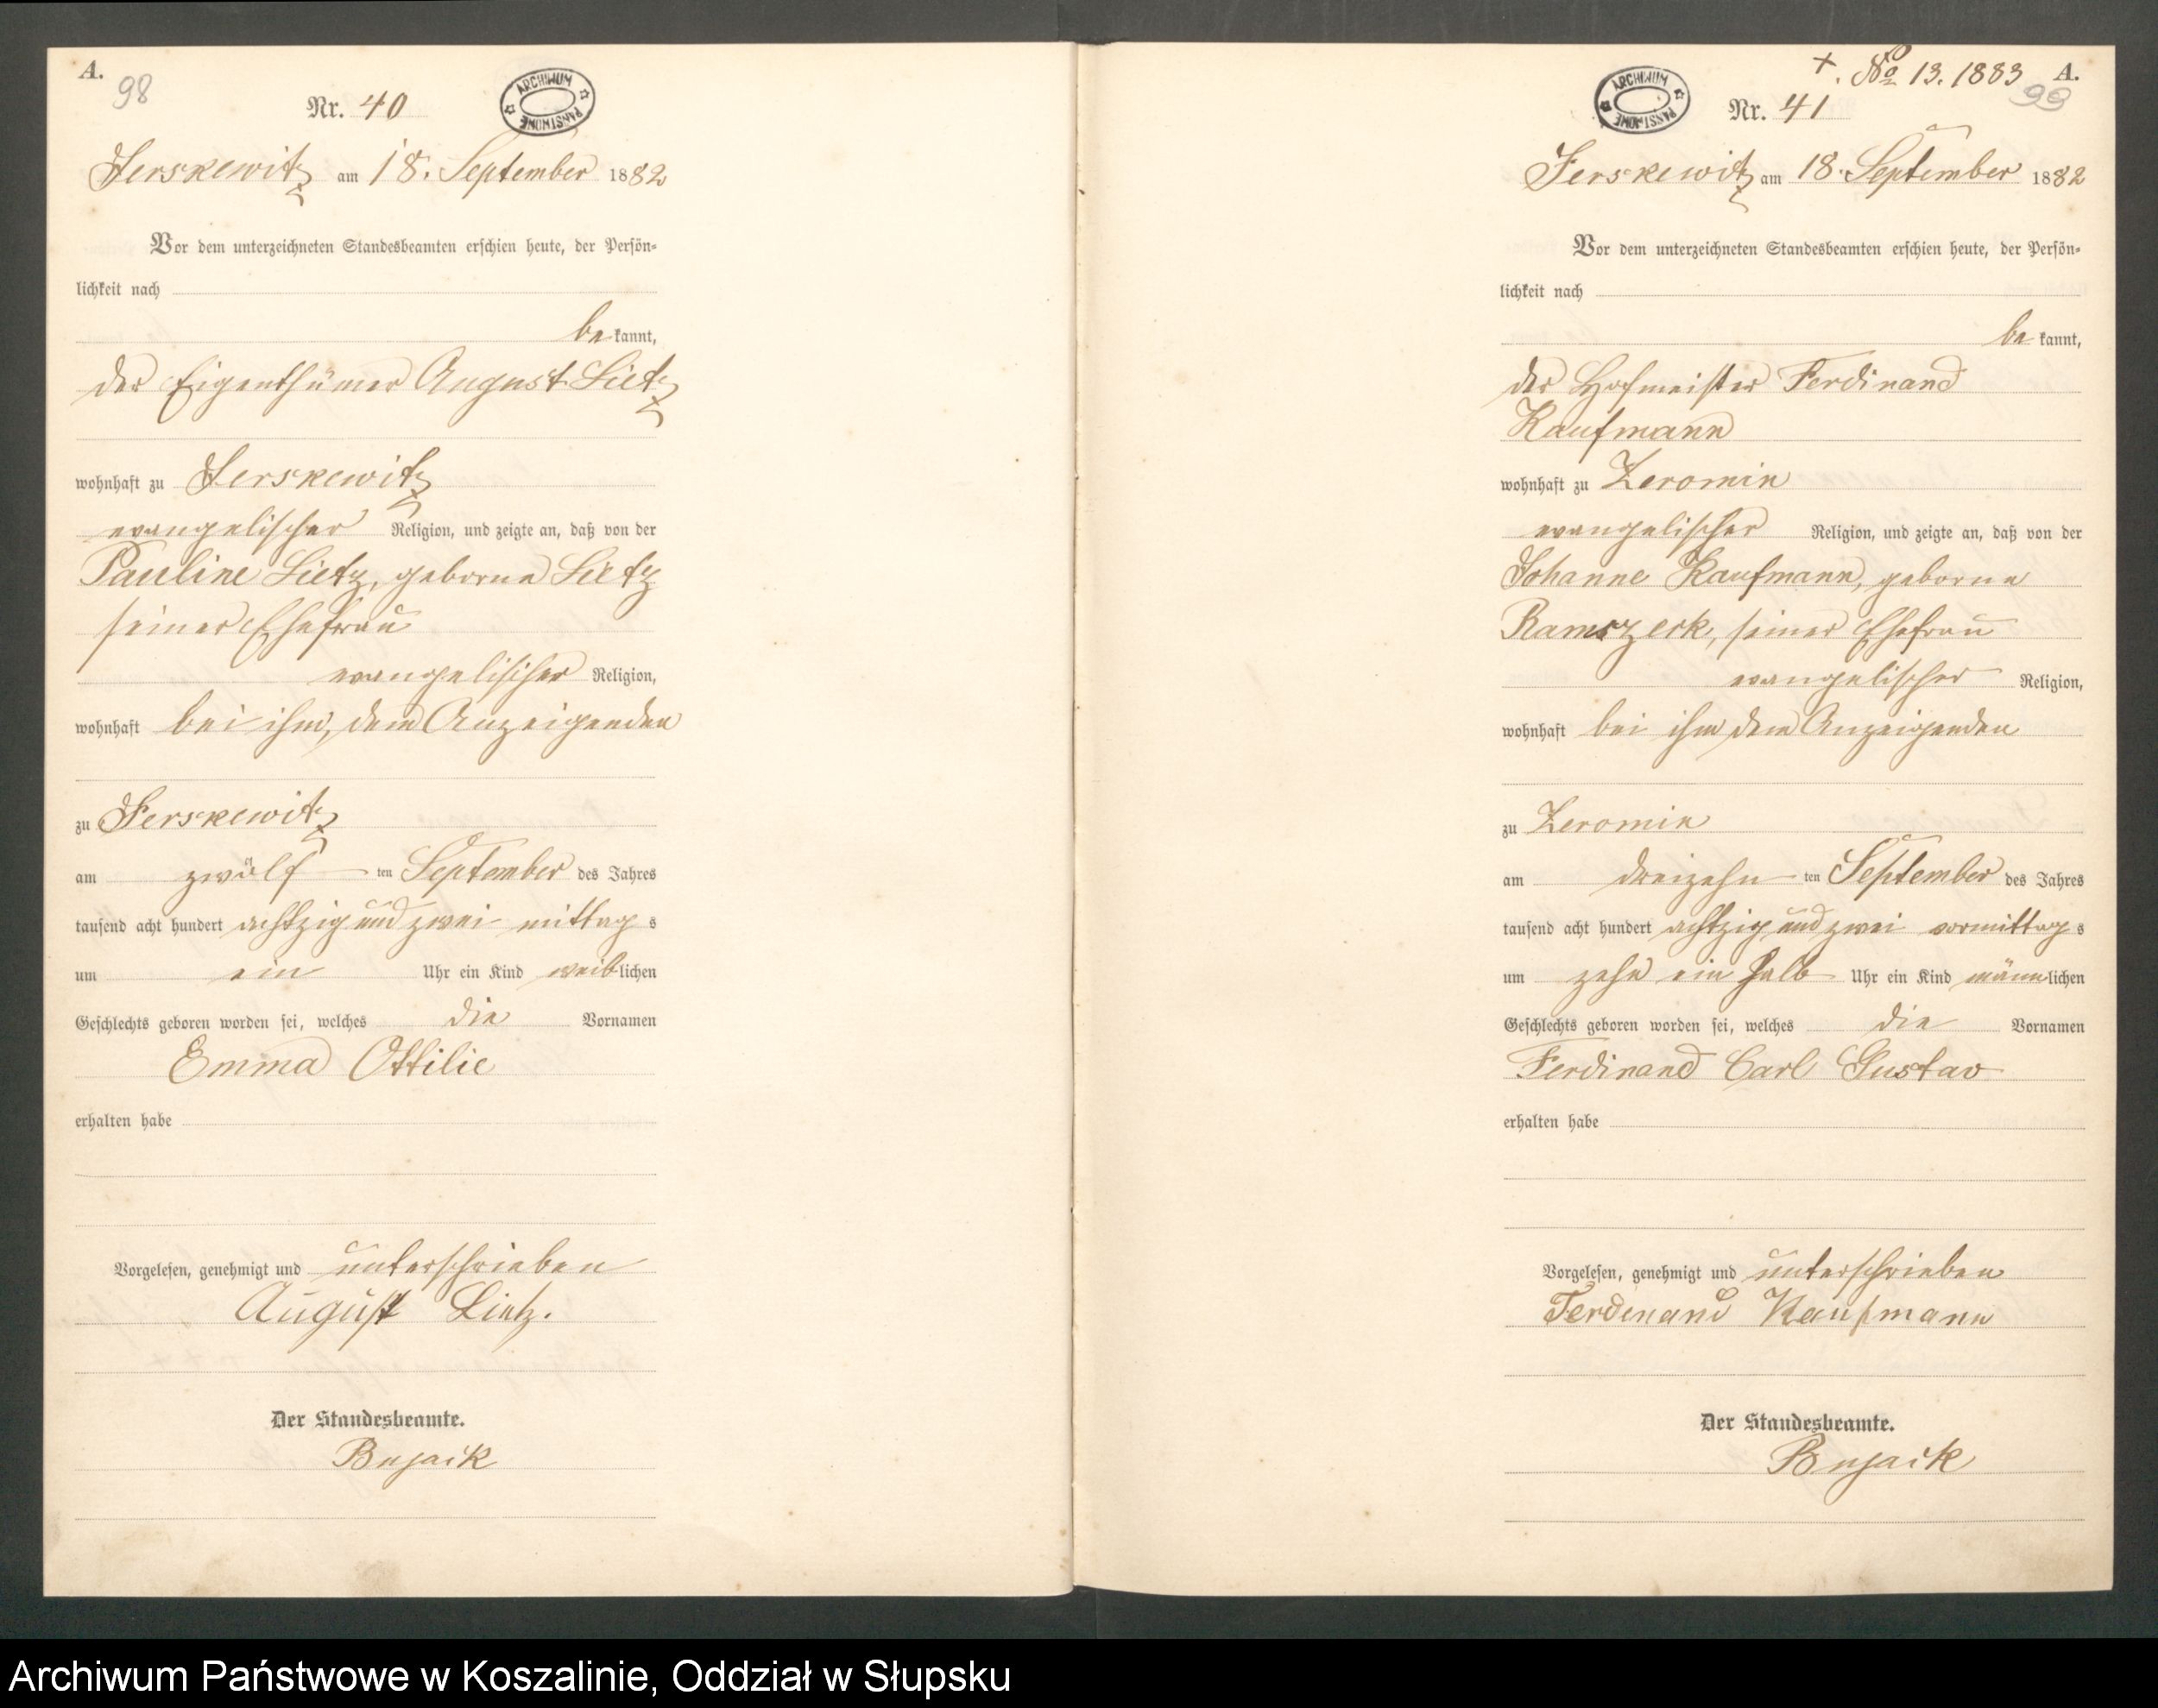 A.
98
Nr. 40
ARCHIWUM PAŃSTWOWE
Jerskewitz am 18. September 1882
Vor dem unterzeichneten Standesbeamten erschien heute, der Persön=
lichkeit nach
bekannt,
der Eigenthümer August Lietz
wohnhaft zu Jerskewitz
evangelischer Religion, und zeigte an, daß von der
Pauline Lietz, geborne Lietz
seiner Ehefrau
evangelischer Religion,
wohnhaft bei ihm, dem Anzeigenden
zu Jerskewitz
am zwölf ten September des Jahres
tausend acht hundert achtzig und zwei mittags
um ein Uhr ein Kind weiblichen
Geschlechts geboren worden sei, welches die Vornamen
Emma Ottilie
erhalten habe
Vorgelesen, genehmigt und unterschrieben
August Lietz.
Der Standesbeamte.
Bujack
+. No 13. 1883 A.
99
ARCHIWUM PAŃSTWOWE
Nr. 41
Jerskewitz am 18. September 1882
Vor dem unterzeichneten Standesbeamten erschien heute, der Persön=
lichkeit nach
bekannt,
der Hofmeister Ferdinand
Kaufmann
wohnhaft zu Zeromin
evangelischer Religion, und zeigte an, daß von der
Johanne Kaufmann, geborne
Ramszerk, seiner Ehefrau
evangelischer Religion,
wohnhaft bei ihm dem Anzeigenden
zu Zeromin
am dreizehn ten September des Jahres
tausend acht hundert achtzig und zwei vormittags
um zehn ein halb Uhr ein Kind männlichen
Geschlechts geboren worden sei, welches die Vornamen
Ferdinand Carl Gustav
erhalten habe
Vorgelesen, genehmigt und unterschrieben
Ferdinand Kaufmann
Der Standesbeamte.
Bujack
Archiwum Państwowe w Koszalinie, Oddział w Słupsku